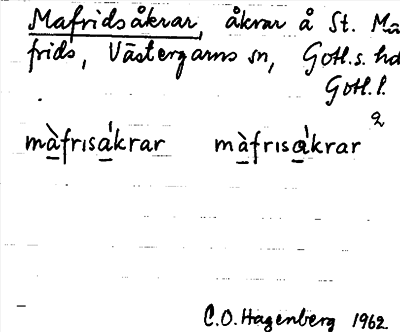 Mafridsåkrar, åkrar å St. Må
frids, Västergarns sn, Gotl.s. hd
Gotl. l.
2
màfrısákrar màfrısákrar
C.O. Hagenberg 1962